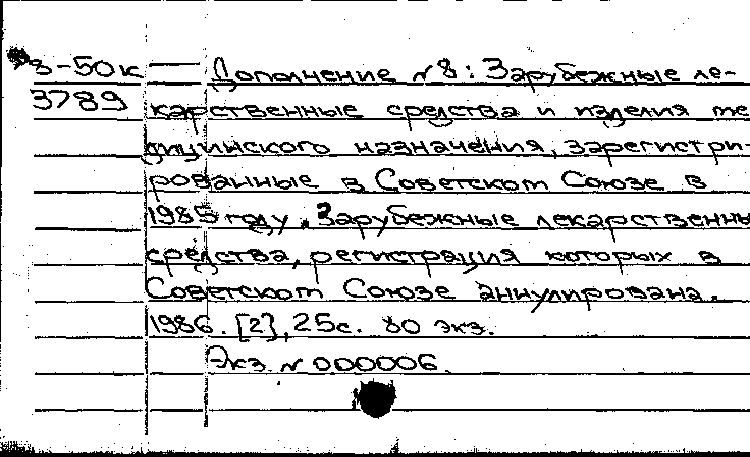 8-50к — Дополнение №8: Зарубежные ле-
3789 карственные средства и изделия ме
дицинского назначения, зарегистри-
рованные в Советском Союзе в
1985 году. Зарубежные лекарственны
средства, регистрация которых в
Советском Союзе аннулирована.
1986. [2], 25с. 80 экз.
Экз. № 000006.